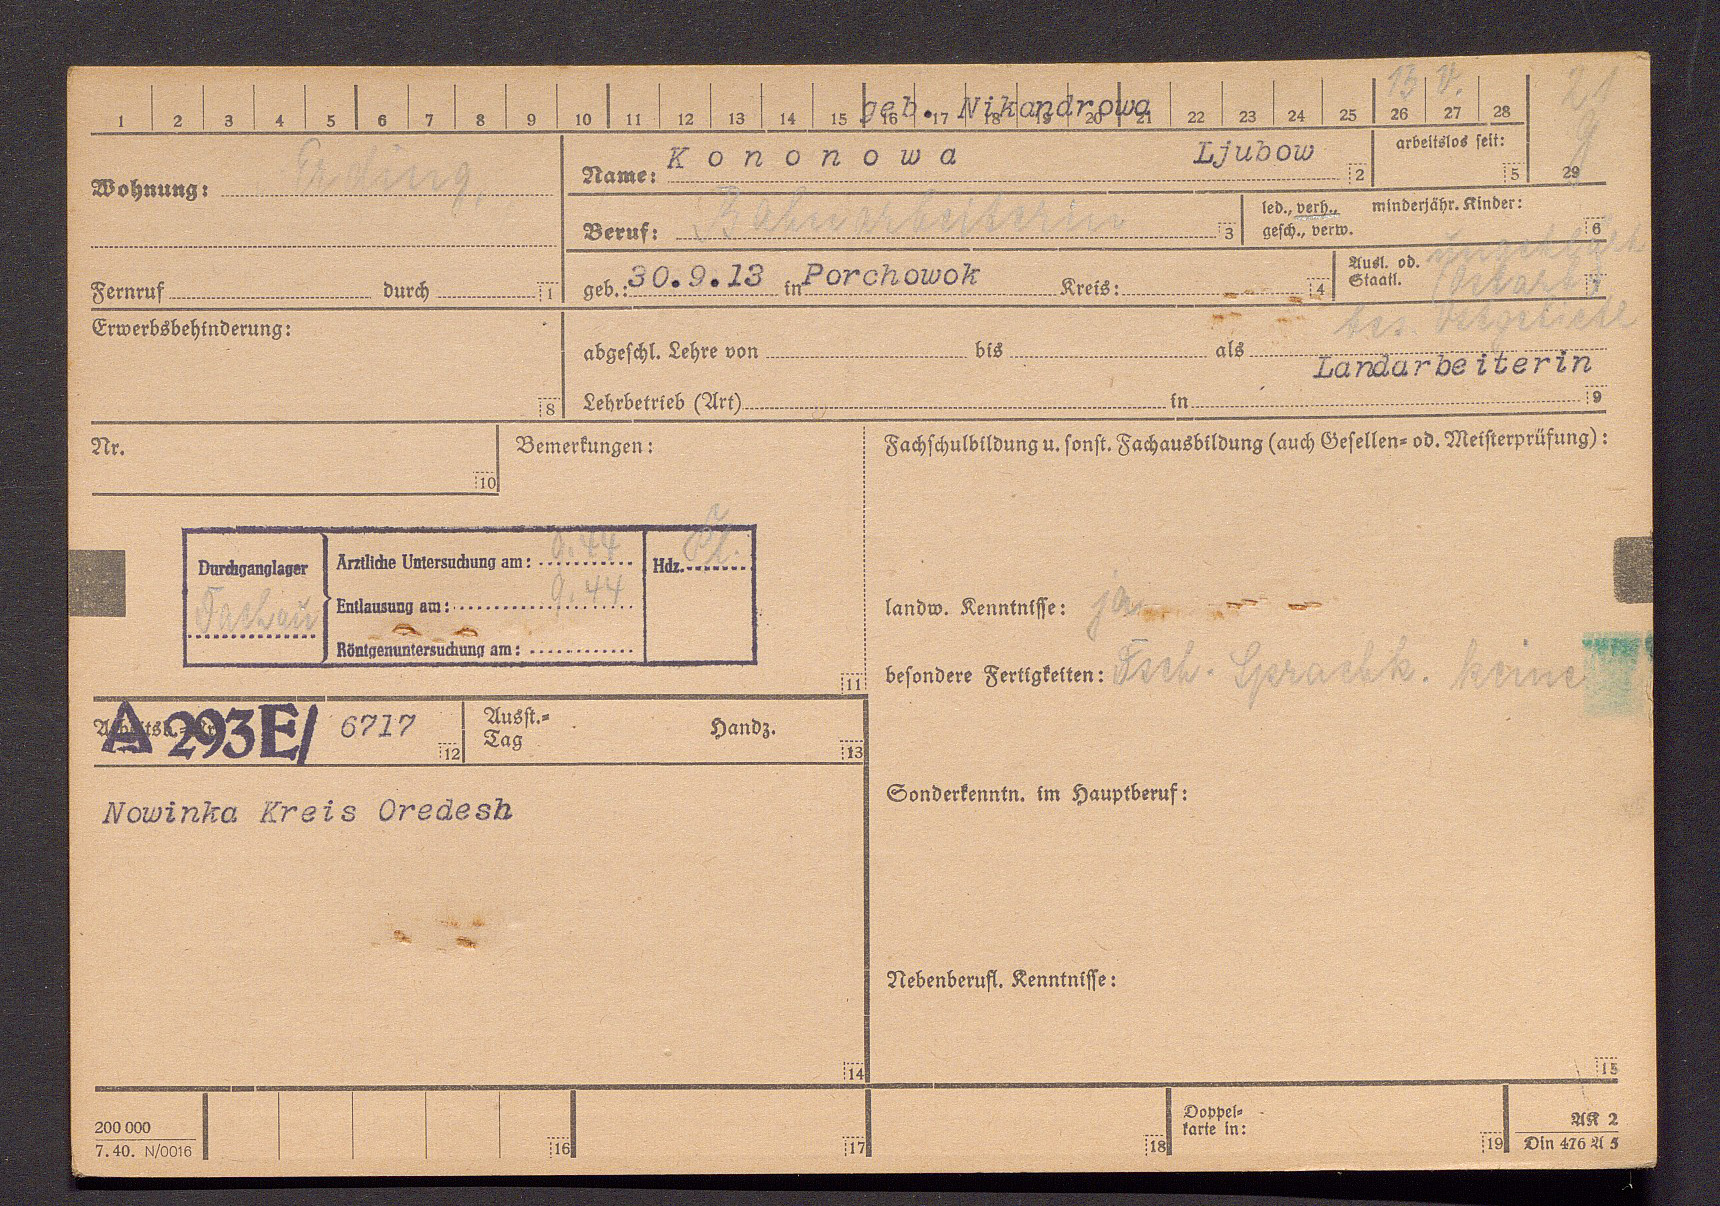 13 V. 21
1 2 3 4 5 6 7 8 9 10 11 12 13 14 15 16 17 18 19 20 21 22 23 24 25 26 27 28
geb. Nikandrowa
Wohnung: Erding,
Name: Kononowa Ljubow 2
arbeitslos seit: 5
29
Beruf: Bahnarbeiterin 3
led., verh., minderjähr. Kinder:
gesch., verw. 6
Fernruf durch 1
geb.: 30.9.13 in Porchowok Kreis: 4
Ausl. od. ungeklärt
Staatl. Ostarb. 7
bes. Ostgebiete
Erwerbsbehinderung:
8
abgeschl. Lehre von bis als
Landarbeiterin
Lehrbetrieb (Art) in 9
Nr.
10
Bemerkungen:
Durchganglager
Ärztliche Untersuchung am: 9.44
Hdz.
Entlausung am: 9.44
Röntgenuntersuchung am:
11
Fachschulbildung u. sonst. Fachausbildung (auch Gesellen= od. Meisterprüfung):
landw. Kenntnisse: ja
besondere Fertigkeiten: Tsch. Sprachk. keine
Sonderkenntn. im Hauptberuf:
Nebenberufl. Kenntnisse:
15
Arbeitsb.=Nr.
A 293E/ 6717 12
Ausst.=
Tag
Handz.
13
Nowinka Kreis Oredesh
14
200 000
7. 40. N/0016
16
17
18
Doppel=
karte in:
19
AK 2
Din 476 A 5